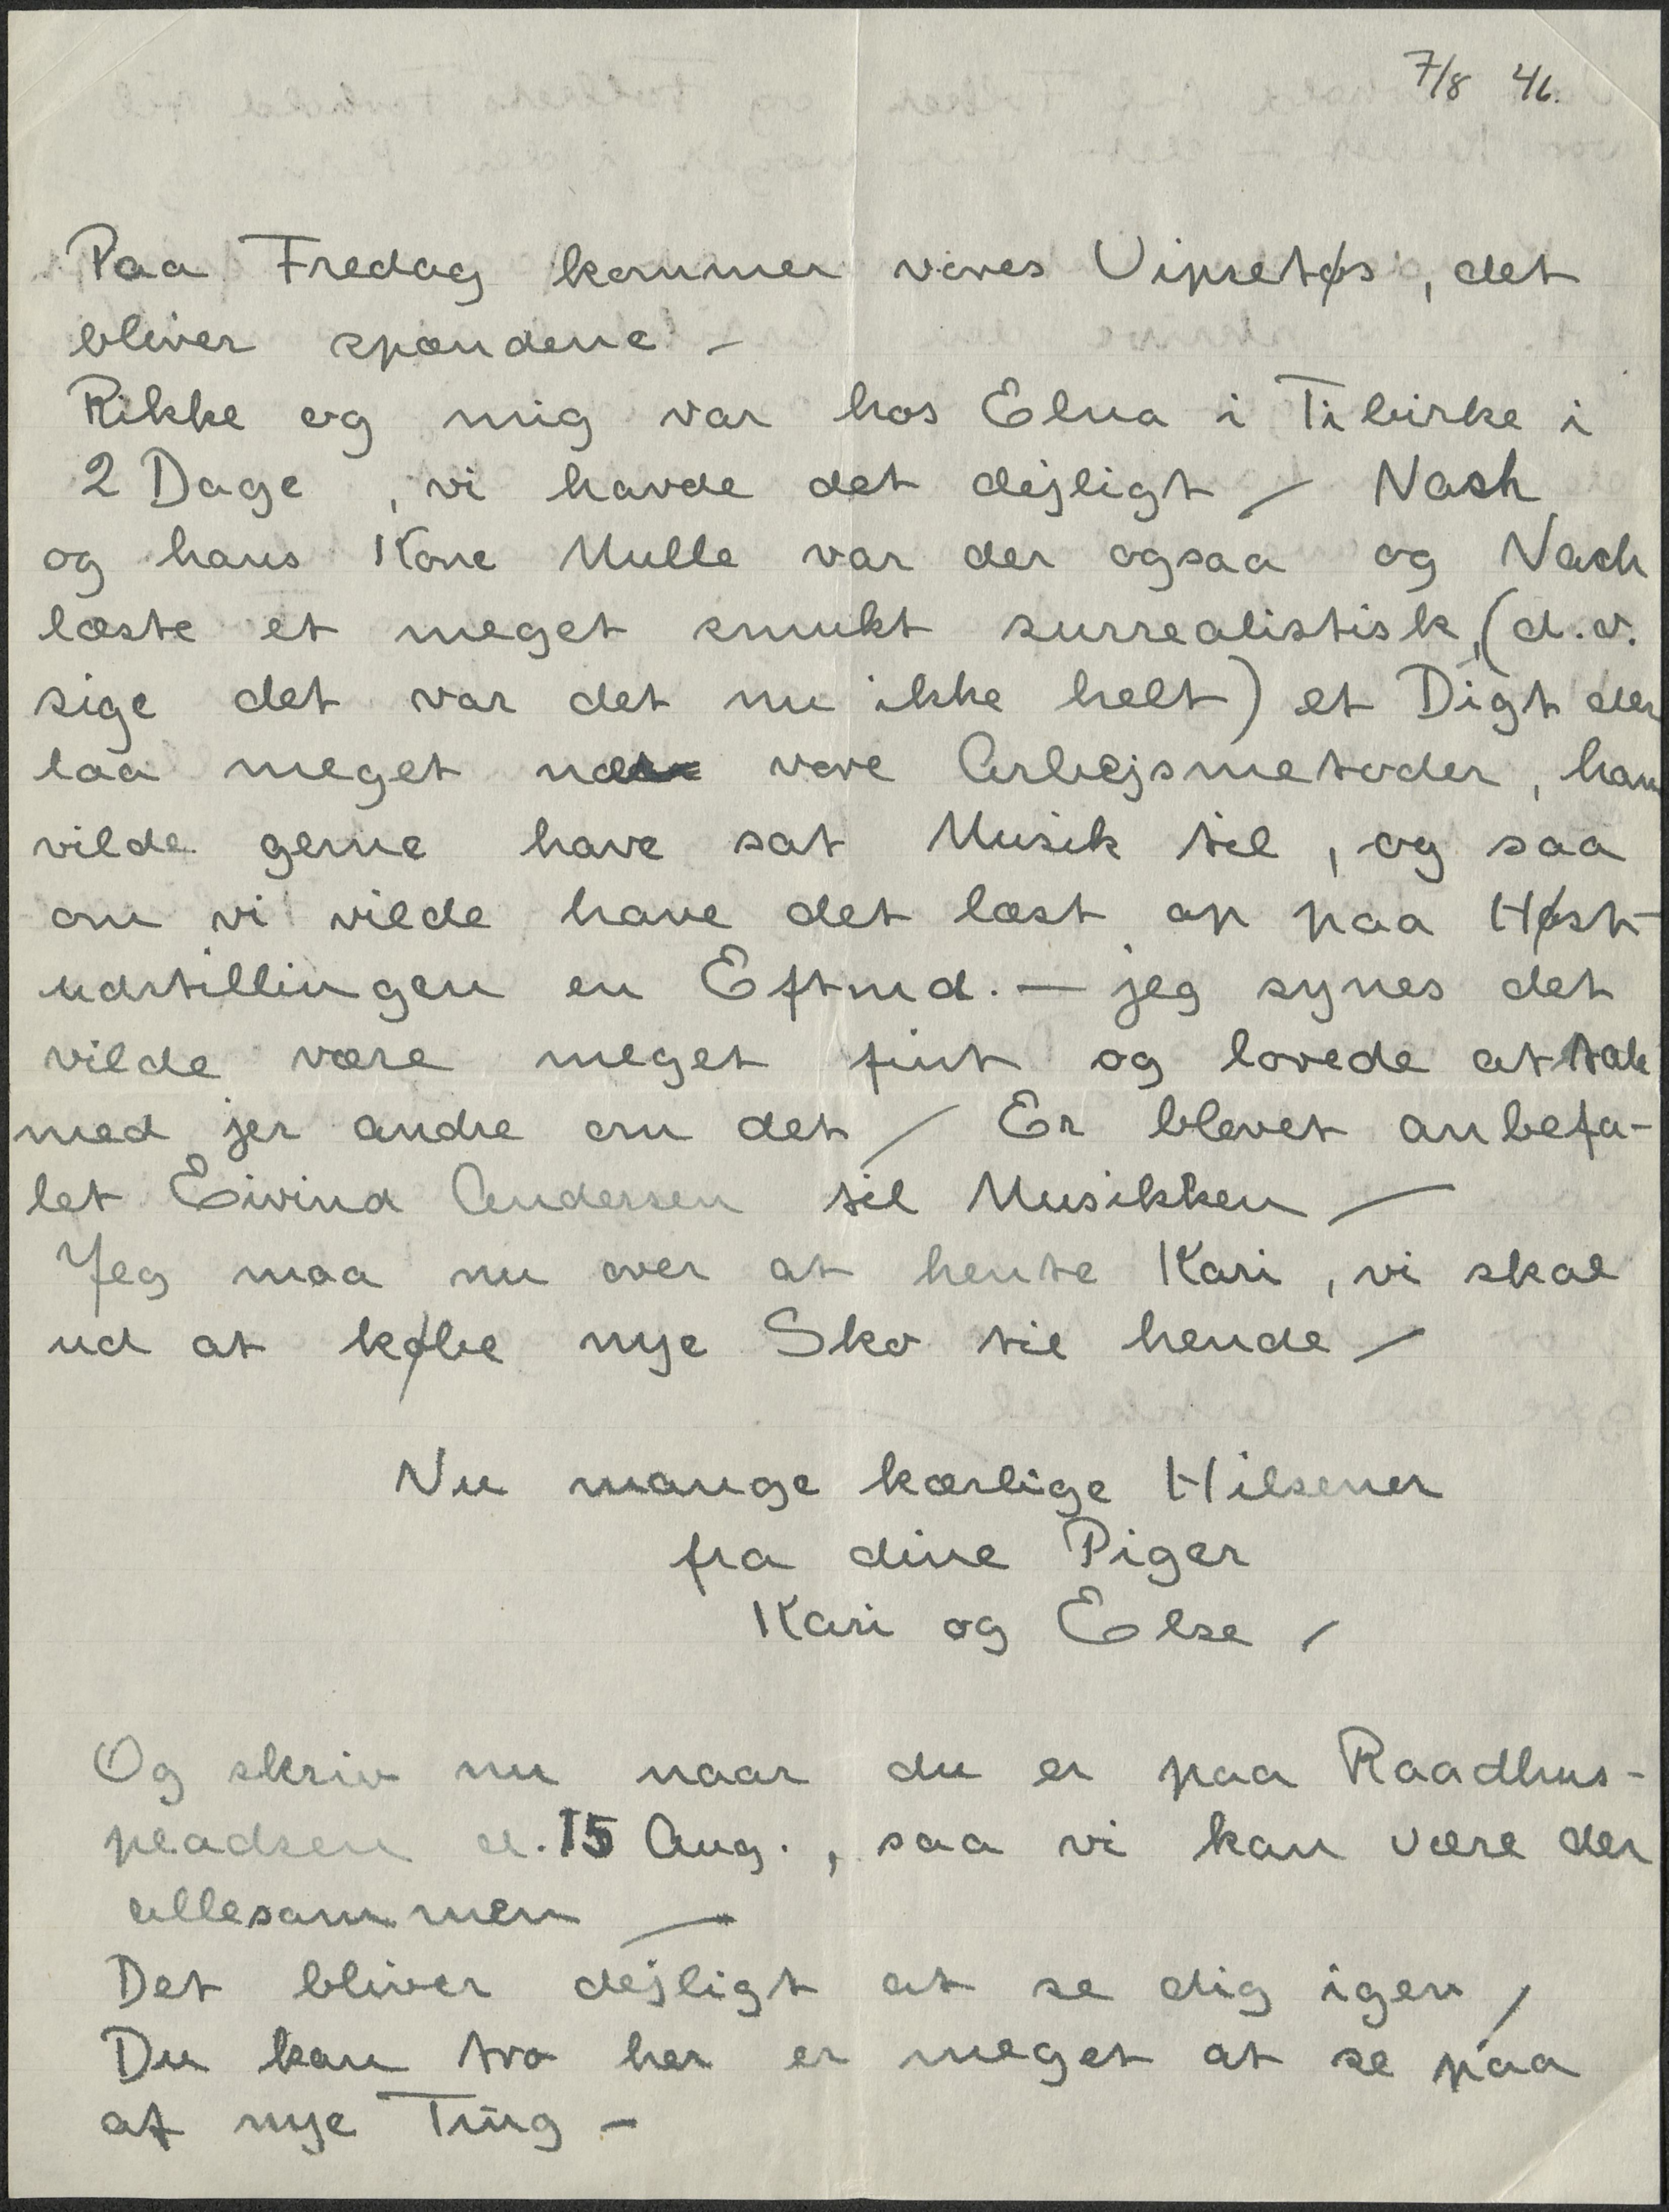 7/8 46.
Paa Fredag kommer vores Vipsetøs, det
bliver spændene -
Rikke og mig var hos Elna i Tibirke i
2 Dage, vi havde det dejligt - Nash
og hans Kone Mulle var der ogsaa og Nash
læste et meget smukt surrealistisk, (d.v.
sige det var det nu ikke helt) et Digt der
laa meget nær vore Arbejsmetoder, han
vilde gerne have sat Musik til, og saa
om vi vilde have det læst op paa Høst-
udstillingen en Eftmd. - jeg synes det
vilde være meget fint og lovede at tale
med jer andre om det - Er blevet anbefa-
let Eivind Andersen til Musikken -
Jeg maa nu over at hente Kari, vi skal
ud at købe nye Sko til hende -
Nu mange kærlige Hilsener
fra dine Piger
Kari og Else -
Og skriv nu naar du er paa Raadhus-
pladsen d. 15 Aug., saa vi kan være der
allesammen -
Det bliver dejligt at se dig igen,
Du kan tro her er meget at se paa
af nye Ting -